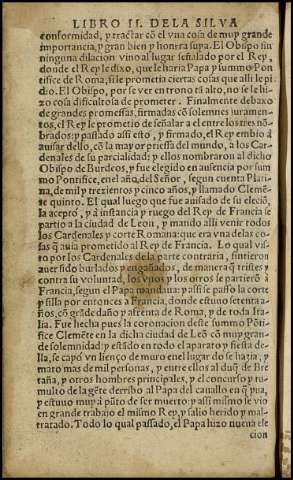 LIBRO II. DELA SILVA
conformidad, y tractar cō el vna cosa de muy grande
importancia, y gran bien y honrra suya. El Obispo sin
ninguna dilacion vino al lugar señalado por el Rey,
donde el Rey le dixo, que le haria Papa y summo Pon
tifice de Roma, si le prometia ciertas cosas que alli le pi
dio. El Obispo, por se ver en trono tā alto, no se le hi-
zo cosa dificultosa de prometer. Finalmente debaxo
de grandes promessas, firmadas cō solemnes iuramen-
tos, el Rey le prometio de señalar a el entre los tres nō-
brados: y passado assi esto, y firmado, el Rey embio à
auisar dello, cō la mayor priessa del mundo, a los Car-
denales de su parcialidad: y ellos nombraron al dicho
Obispo de Burdeos, y fue elegido en ausencia por sum
mo Pontifice, en el año, del Señor, segun cuenta Plati-
na, de mil y trezientos y cinco años, y llamado Clemē-
te quinto. El qual luego que fue auisado de su eleciō,
la acepto, y à instancia y ruego del Rey de Francia se
partio a la ciudad de Leon, y mando alli venir todos
los Cardenales y corte Romana: que era vna delas co-
sas q̄ auia prometido al Rey de Francia. Lo qual vis-
to por los Cardenales de la parte contraria, sintieron
auer sido burlados y engañados, de manera q̄ tristes y
contra su voluntad, los vnos y los otros se partierō à
Francia, segun el Papa mandaua: y assi se passo la corte
y silla por entonces a Francia, donde estuuo setenta a-
ños, cō grāde daño y afrenta de Roma, y de toda Ita-
lia. Fue hecha pues la coronacion deste summo Pōti-
fice Clemēte en la dicha ciudad de Leō cō muy gran-
de solemnidad y estādo en todo el aparato y fiesta de-
lla, se cayó vn lienço de muro en el lugar do se hazia, y
mato mas de mil personas, y entre ellos al duq̄ de Bre
taña, y otros hombres principales, y el concurso y tu-
multo de la gēte derribo al Papa del cauallo en q̄ yua,
y estuuo muy à pūto de ser muerto: y assi mismo se vio
en grande trabajo el mismo Rey, y salio herido y mal-
tratado. Todo lo qual passado, el Papa hizo nueua ele
cion